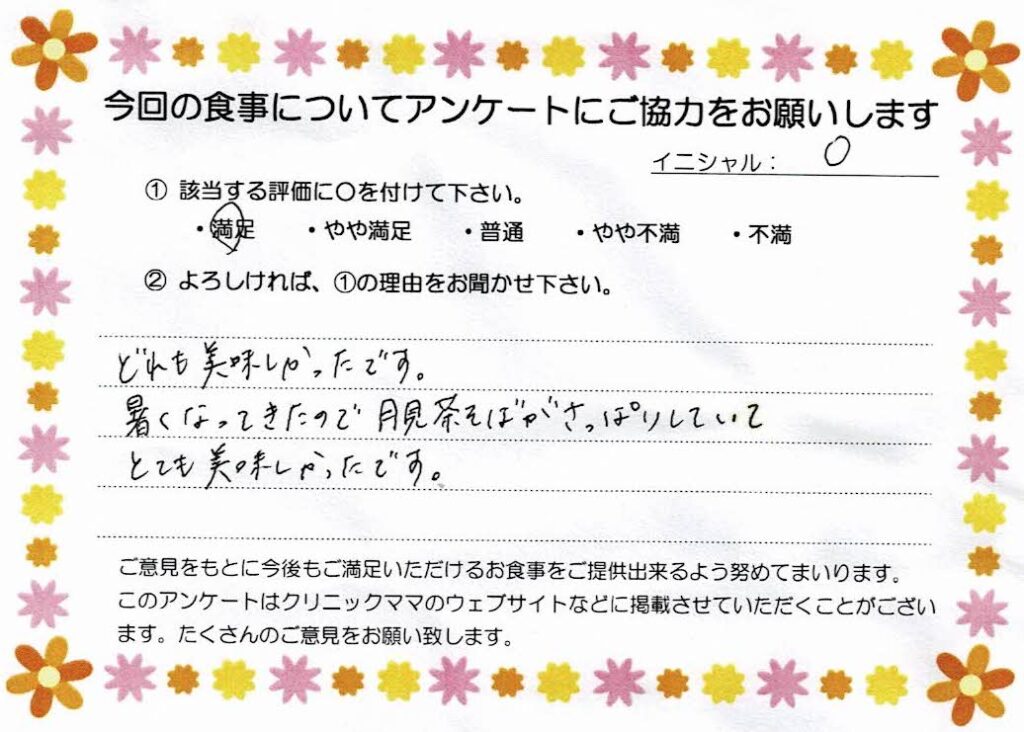 今回の食事についてアンケートにご協力をお願いします
イニシャル： O
① 該当する評価に〇を付けて下さい。
・満足 ・やや満足 ・普通 ・やや不満 ・不満
② よろしければ、①の理由をお聞かせ下さい。
どれも美味しかったです。
暑くなってきたので月見茶そばがさっぱりしていて
とても美味しかったです。
ご意見をもとに今後もご満足いただけるお食事をご提供出来るよう努めてまいります。
このアンケートはクリニックママのウェブサイトなどに掲載させていただくことがござい
ます。たくさんのご意見をお願い致します。